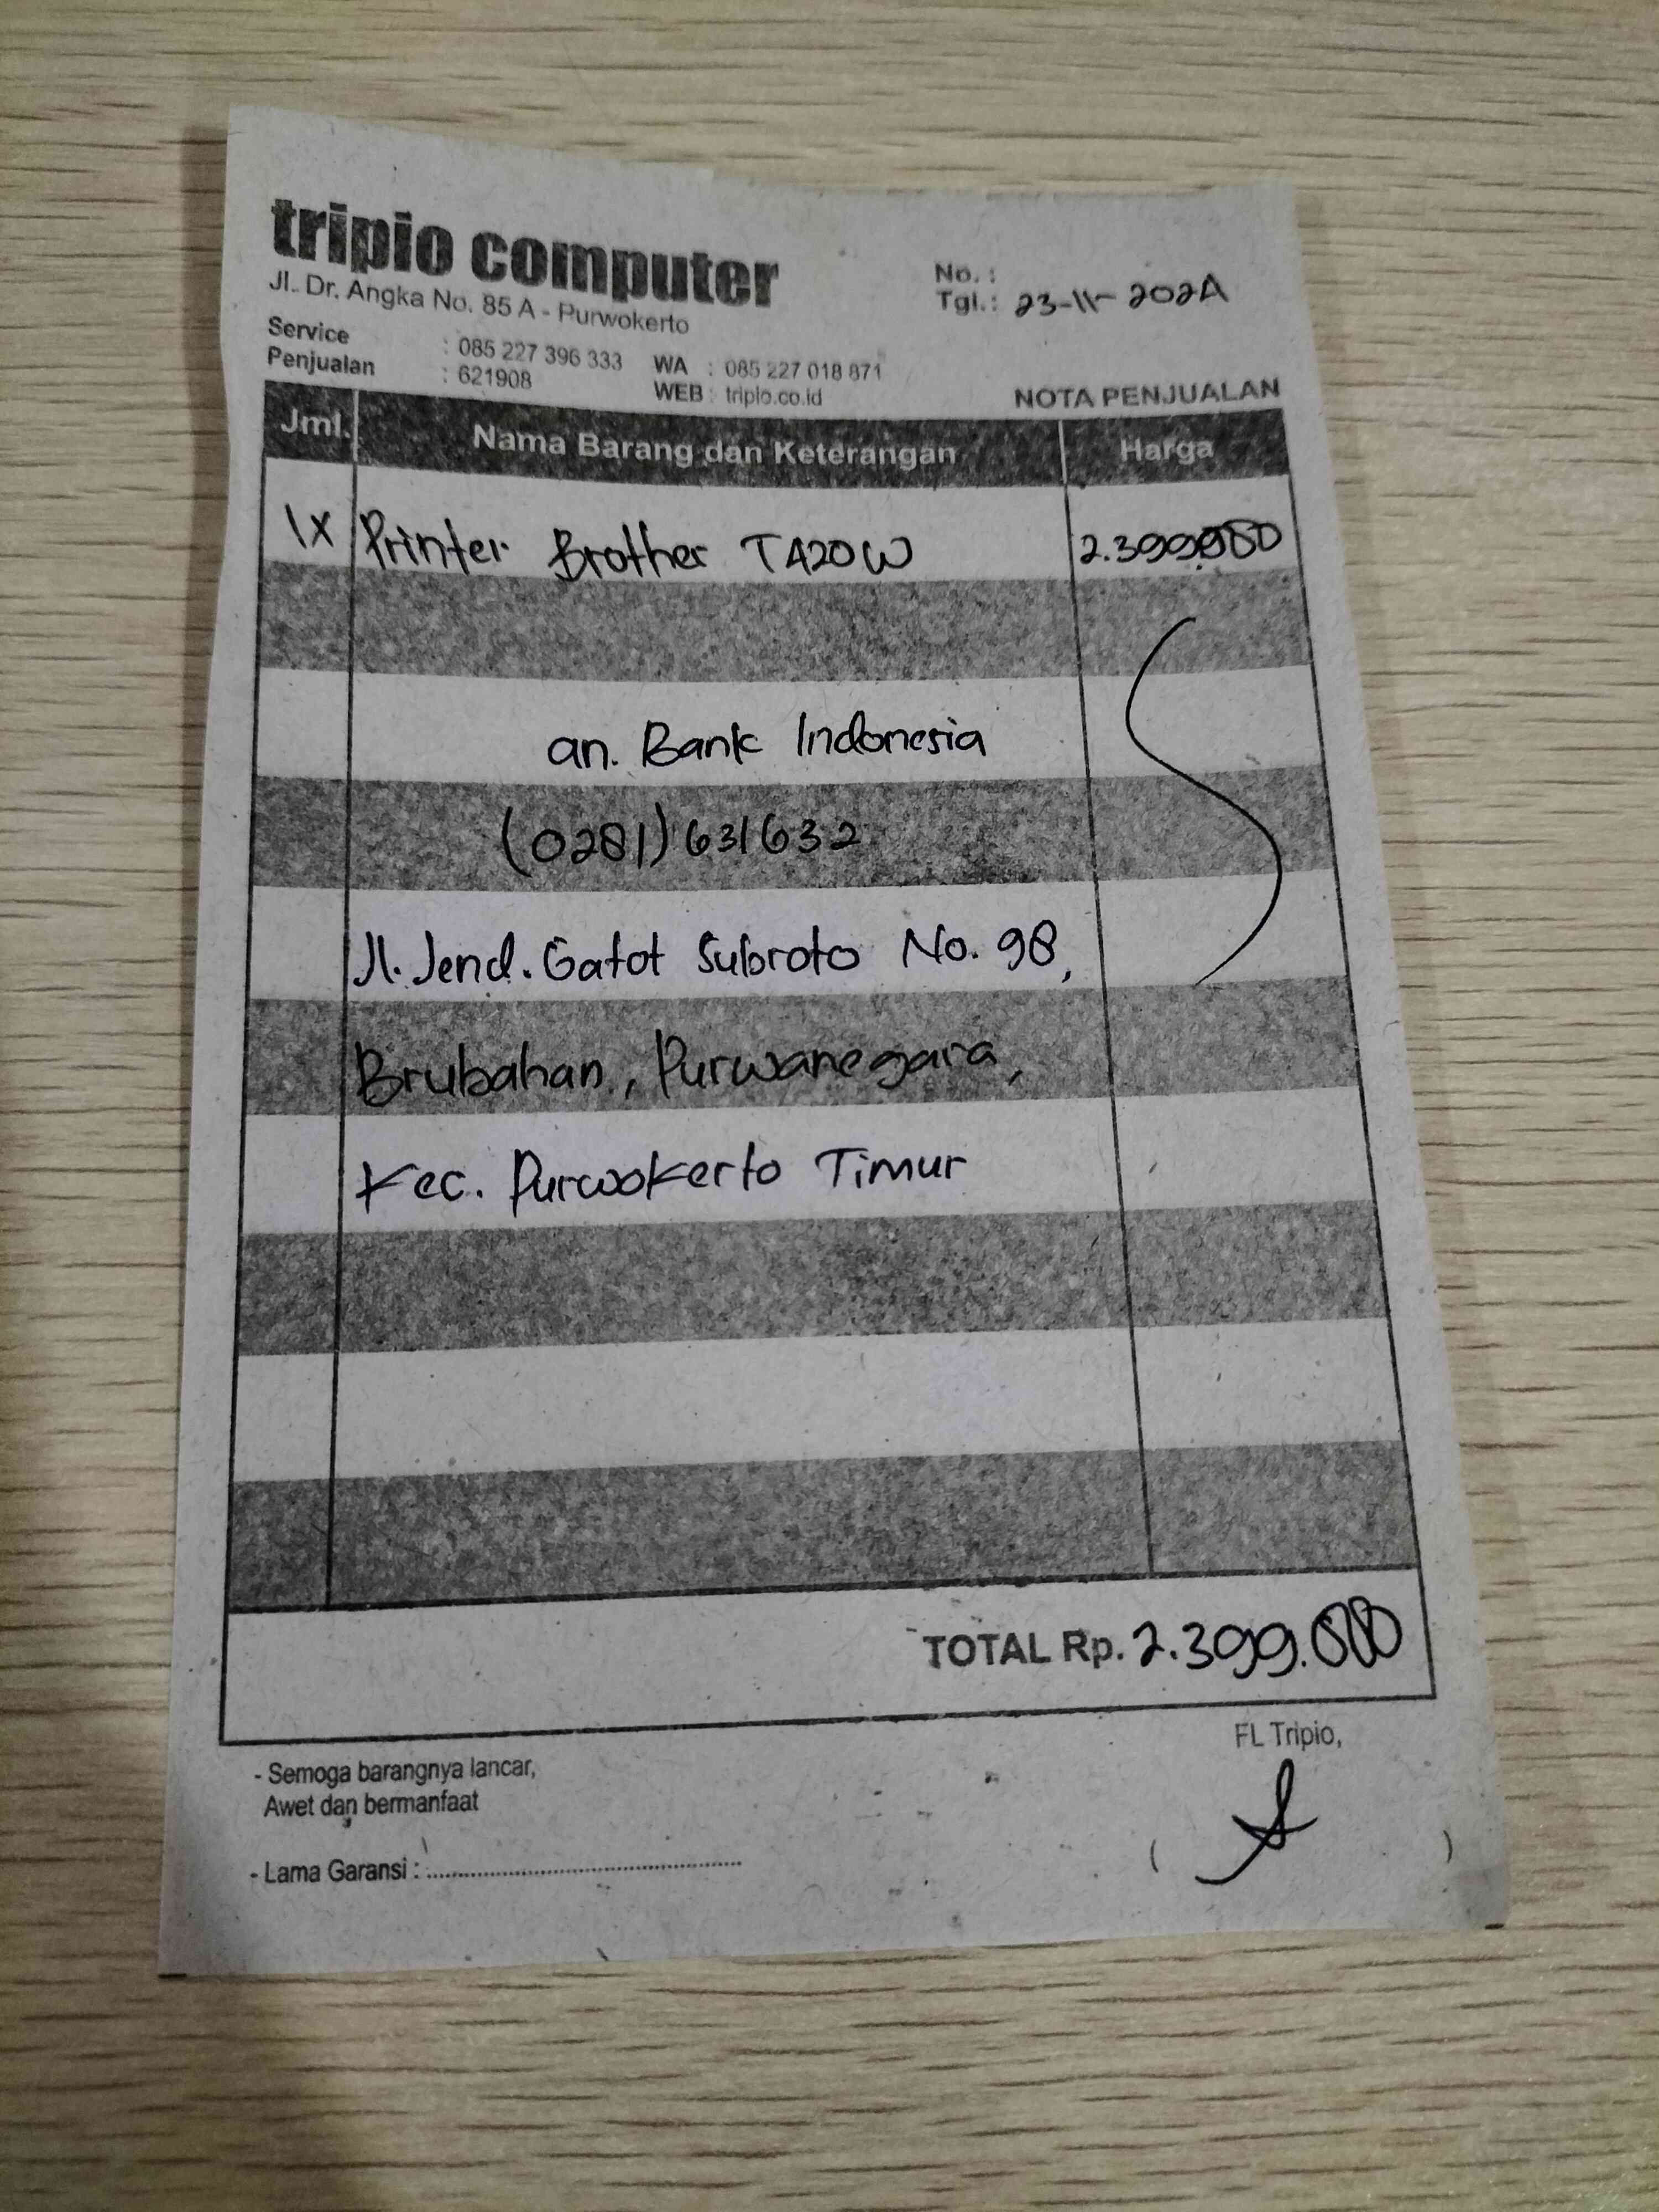 tripio computer
Jl. Dr. Angka No. 85 A - Purwokerto
No. :
Tgl.: 23-11-2024
Service : 085 227 396 333 WA : 085 227 018 871
Penjualan : 621908 WEB : tripio.co.id
NOTA PENJUALAN
Jml. Nama Barang dan Keterangan Harga
1x Printer Brother T420W 2.399.000
an. Bank Indonesia
(0281) 631632
Jl. Jend. Gatot Subroto No. 98,
Brubahan, Purwanegara,
Kec. Purwokerto Timur
TOTAL Rp. 2.399.000
FL Tripio,
- Semoga barangnya lancar,
Awet dan bermanfaat
- Lama Garansi : ........................................
( )